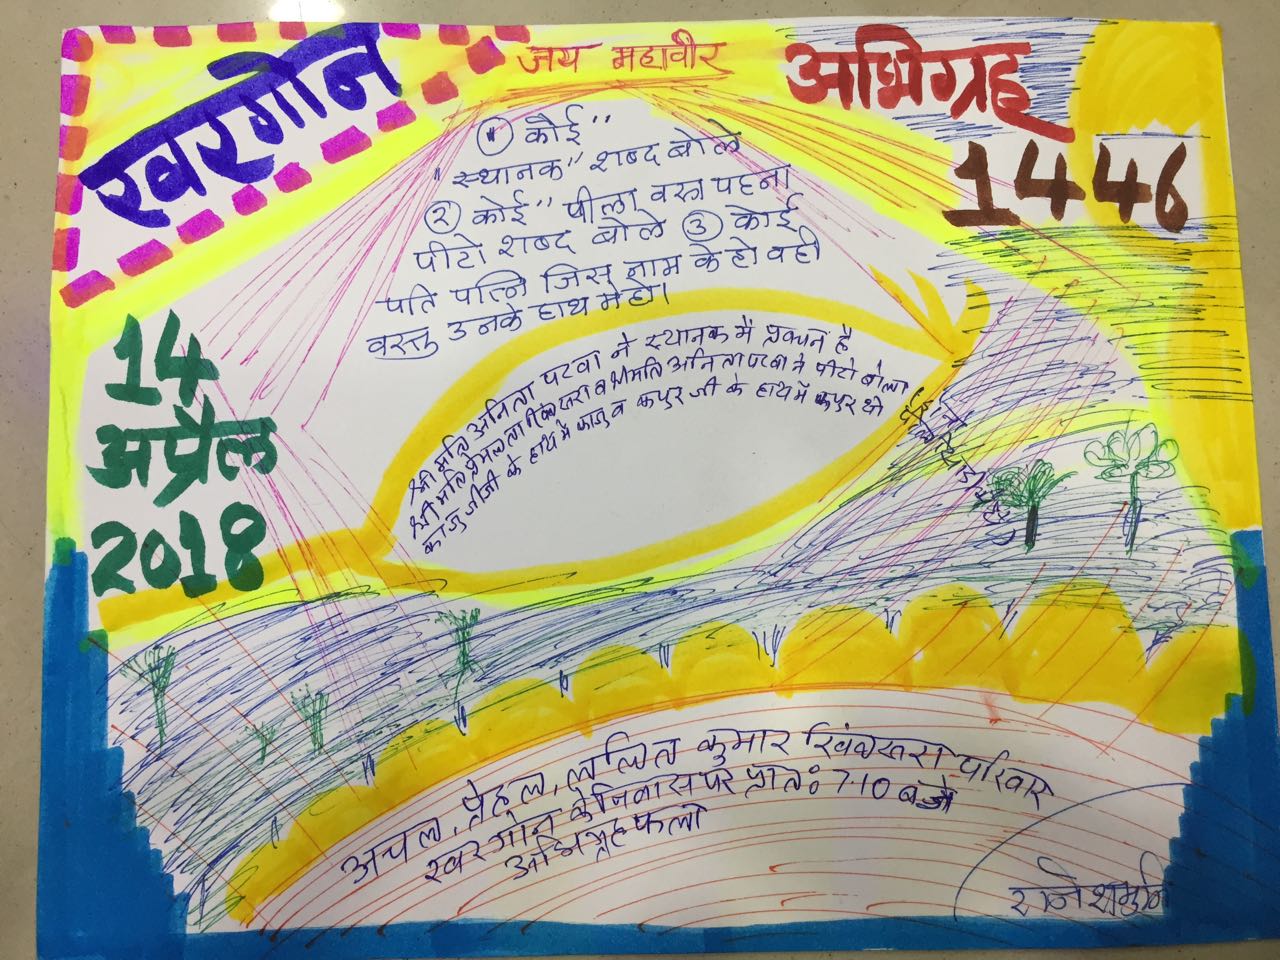 खरगोन
जय महावीर
अभिग्रह
1446
14
अप्रैल
2018
① कोई"
"स्थानक" शब्द बोले
② कोई" पीला वस्त्र पहना
पीटो शब्द बोले ③ कोई
पति पत्नि जिस नाम के हो वही
वस्तु उनके हाथ में हो।
श्री मति अनिता पटवा ने स्थानक में प्रवचन है
श्री मति प्रेमलता व श्रीमति अनिता पटवा ने पीटो बोला
काजुजी के हाथ में काजु व कपुरजी के हाथ में कपुर थी
अचल, प्रेहल, ललित कुमार खिंवसरा परिवार
खरगोन के निवास पर प्रातः 7-10 बजे
अभिग्रह फला
राजेशमुनि